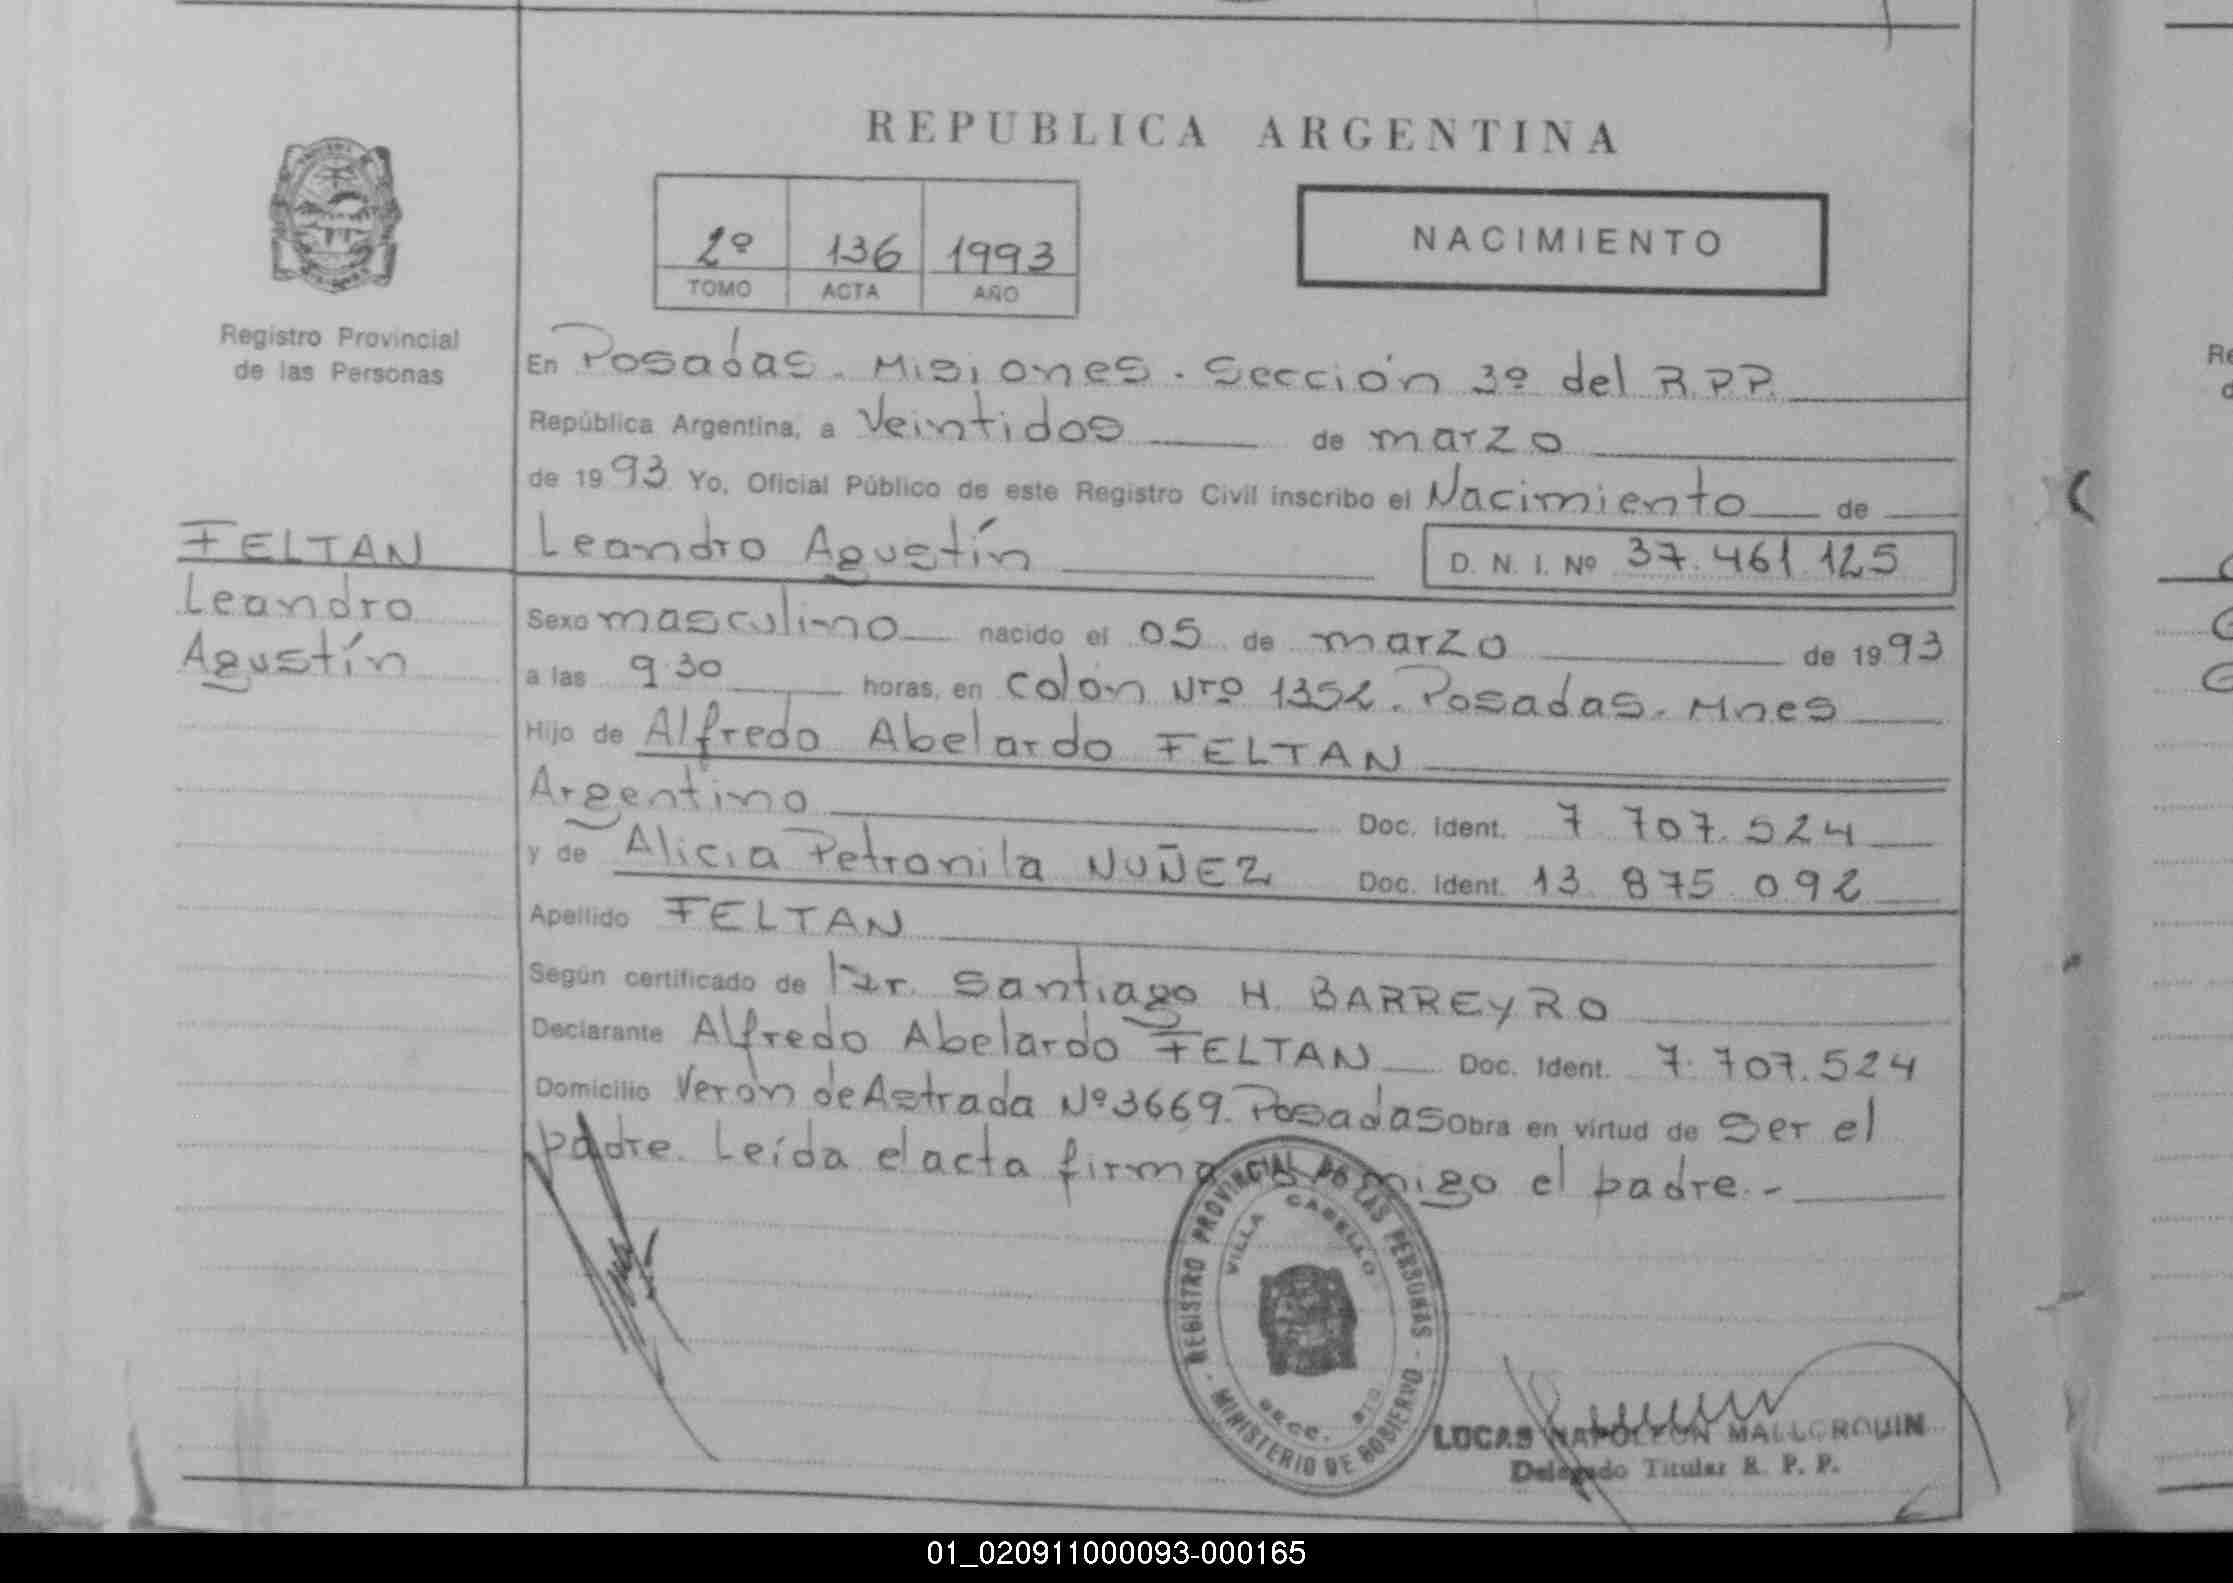 REPUBLICA ARGENTINA
2º 136 1993
TOMO ACTA AÑO
NACIMIENTO
Registro Provincial
de las Personas
En Posadas. Misiones. Sección 3º del R.P.P.
República Argentina, a Veintidos de marzo
de 1993 Yo, Oficial Público de este Registro Civil inscribo el Nacimiento de
FELTAN
Leandro
Agustín
Leandro Agustín D. N. I. Nº 37.461.125
Sexo masculino nacido el 05 de marzo de 1993
a las 9.30 horas, en Colón Nro 1352. Posadas. Mnes
Hijo de Alfredo Abelardo FELTAN
Argentino Doc. Ident. 7 707.524
y de Alicia Petronila NUÑEZ Doc. Ident. 13 875 092
Apellido FELTAN
Según certificado de Dr. Santiago H. BARREYRO
Declarante Alfredo Abelardo FELTAN Doc. Ident. 7.707.524
Domicilio Verón de Astrada Nº 3669. Posadas Obra en virtud de Ser el
padre. Leída el acta firma conmigo el padre.-
REGISTRO PROVINCIAL DE LAS PERSONAS
VILLA CABELLO
SECC. 3ra
MINISTERIO DE GOBIERNO
LUCAS NAPOLEON MALLORQUIN
Delegado Titular R. P. P.
01_020911000093-000165